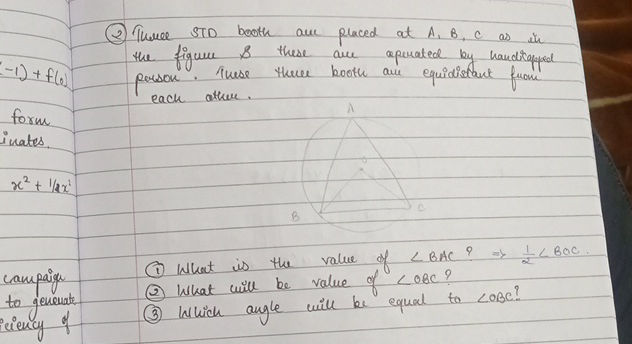 ② Three STD booth are placed at A, B, C as in
the figure & these are operated by handicapped
person. These three booth are equidistant from
each other.
A
O
B
C
① What is the value of ∠BAC? ⇒ 1/2 ∠BOC.
② What will be value of ∠OBC?
③ Which angle will be equal to ∠OBC?
-1) + f(0)
form
inates.
x² + 1/2x²
campaign
to generate
iciency of